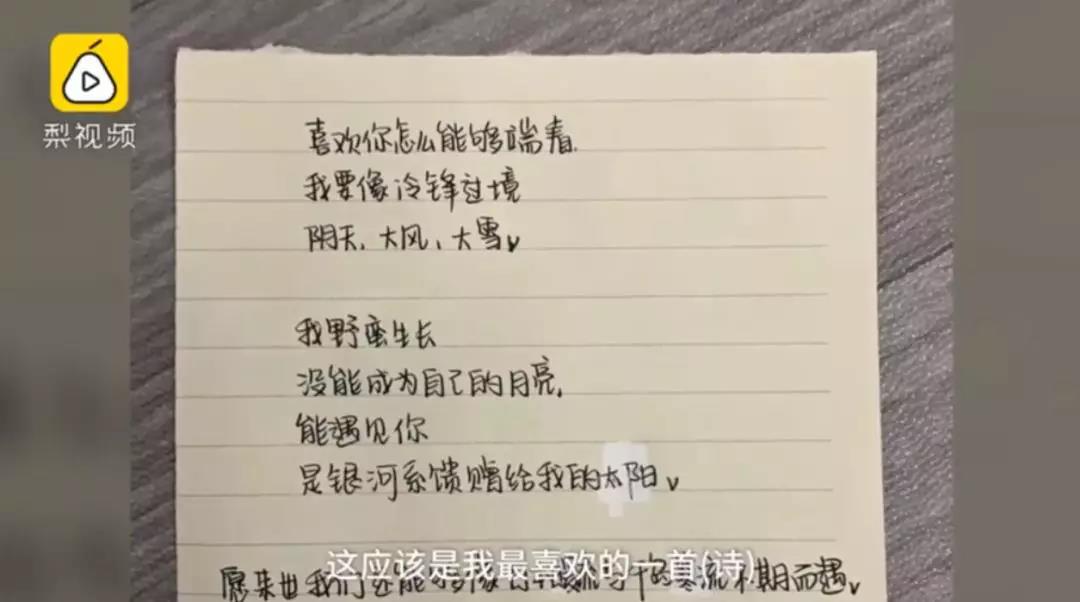 梨视频
喜欢你怎么能够端着
我要像冷锋过境
阴天、大风、大雪
我野蛮生长
没能成为自己的月亮
能遇见你
是银河系馈赠给我的太阳
这应该是我最喜欢的一首(诗)
愿来世我们还能 的寒流不期而遇